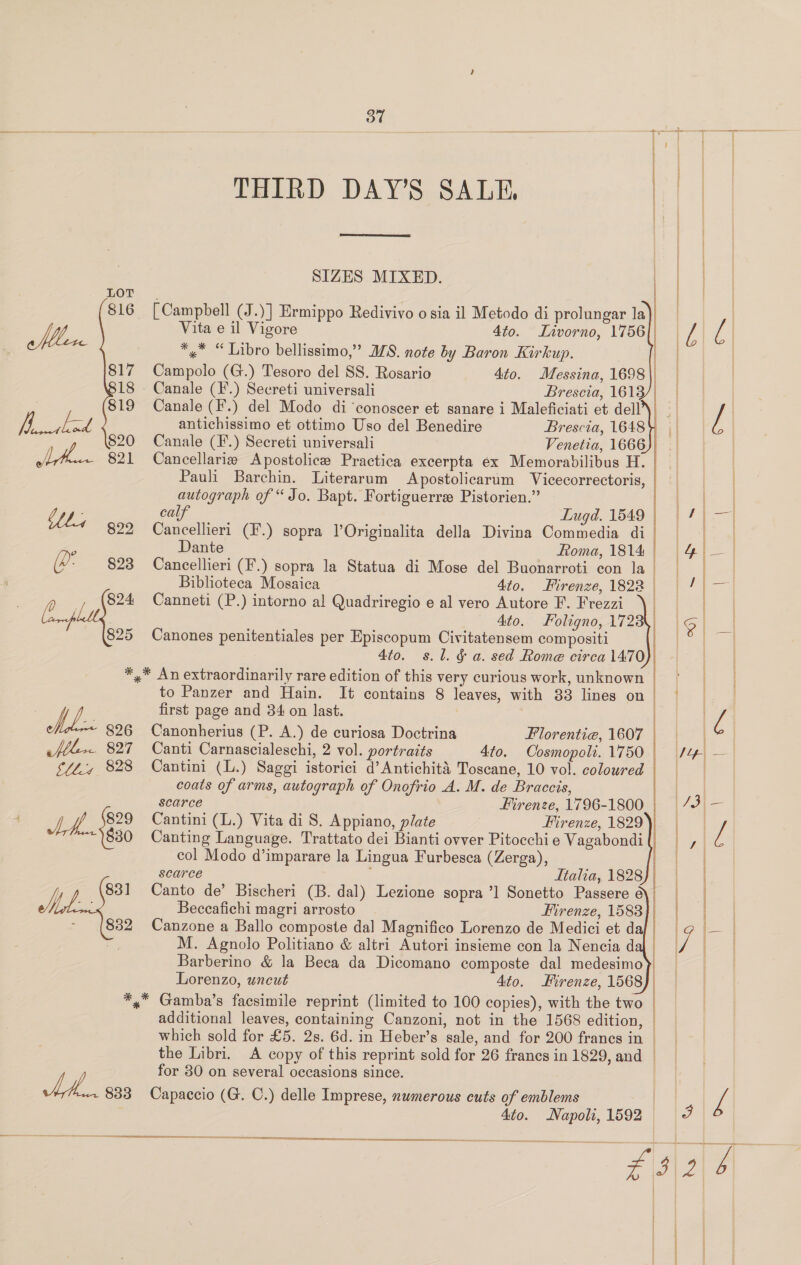 37
THIRD DAY'S SALE.
SIZES MIXED.
LOT
816 [Campbell (J.)] Ermippo Redivivo o sia il Metodo di prolungar la
Vita e il Vigore 4to. Livorno, 1756
*** “Libro bellissimo,” MS. note by Baron Kirkup.
817 Campolo (G.) Tesoro del SS. Rosario 4to. Messina, 1698
818 Canale (F.) Secreti universali Brescia, 1613
819 Canale (F.) del Modo di conoscer et sanare i Maleficiati et dell'
antichissimo et ottimo Uso del Benedire Brescia, 1648
820 Canale (F.) Secreti universali Venetia, 1666
821 Cancellariæ Apostolicæ Practica excerpta ex Memorabilibus H.
Pauli Barchin. Literarum Apostolicarum Vicecorrectoris,
autograph of “Jo. Bapt. Fortiguerræ Pistorien.”
calf Lugd. 1549 1 —
822 Cancellieri (F.) sopra l'Originalita della Divina Commedia di
Dante Roma, 1814 4 —
823 Cancellieri (F.) sopra la Statua di Mose del Buonarroti con la
Biblioteca Mosaica 4to. Firenze, 1823 1 —
Campbell 824 Canneti (P.) intorno al Quadriregio e al vero Autore F. Frezzi
4to. Foligno, 1723
825 Canones penitentiales per Episcopum Civitatensem compositi
4to. s. l. & a. sed Rome circa 1470
*** An extraordinarily rare edition of this very curious work, unknown
to Panzer and Hain. It contains 8 leaves, with 33 lines on
first page and 34 on last.
826 Canonherius (P. A.) de curiosa Doctrina Florentiæ, 1607 6
827 Canti Carnascialeschi, 2 vol. portraits 4to. Cosmopoli. 1750 14 —
828 Cantini (L.) Saggi istorici d'Antichità Toscane, 10 vol. coloured
coats of arms, autograph of Onofrio A. M. de Braccis,
scarce Firenze, 1796-1800 13 —
829 Cantini (L.) Vita di S. Appiano, plate Firenze, 1829
830 Canting Language. Trattato dei Bianti ovver Pitocchi e Vagabondi
col Modo d'imparare la Lingua Furbesca (Zerga),
scarce Italia, 1828
831 Canto de' Bischeri (B. dal) Lezione sopra 'l Sonetto Passere e
Beccafichi magri arrosto Firenze, 1583
832 Canzone a Ballo composte dal Magnifico Lorenzo de Medici et da
M. Agnolo Politiano & altri Autori insieme con la Nencia da
Barberino & la Beca da Dicomano composte dal medesimo
Lorenzo, uncut 4to. Firenze, 1568
*** Gamba's facsimile reprint (limited to 100 copies), with the two
additional leaves, containing Canzoni, not in the 1568 edition,
which sold for £5. 2s. 6d. in Heber's sale, and for 200 francs in
the Libri. A copy of this reprint sold for 26 francs in 1829, and
for 30 on several occasions since.
833 Capaccio (G. C.) delle Imprese, numerous cuts of emblems
4to. Napoli, 1592 3 6
£ 3 2 6